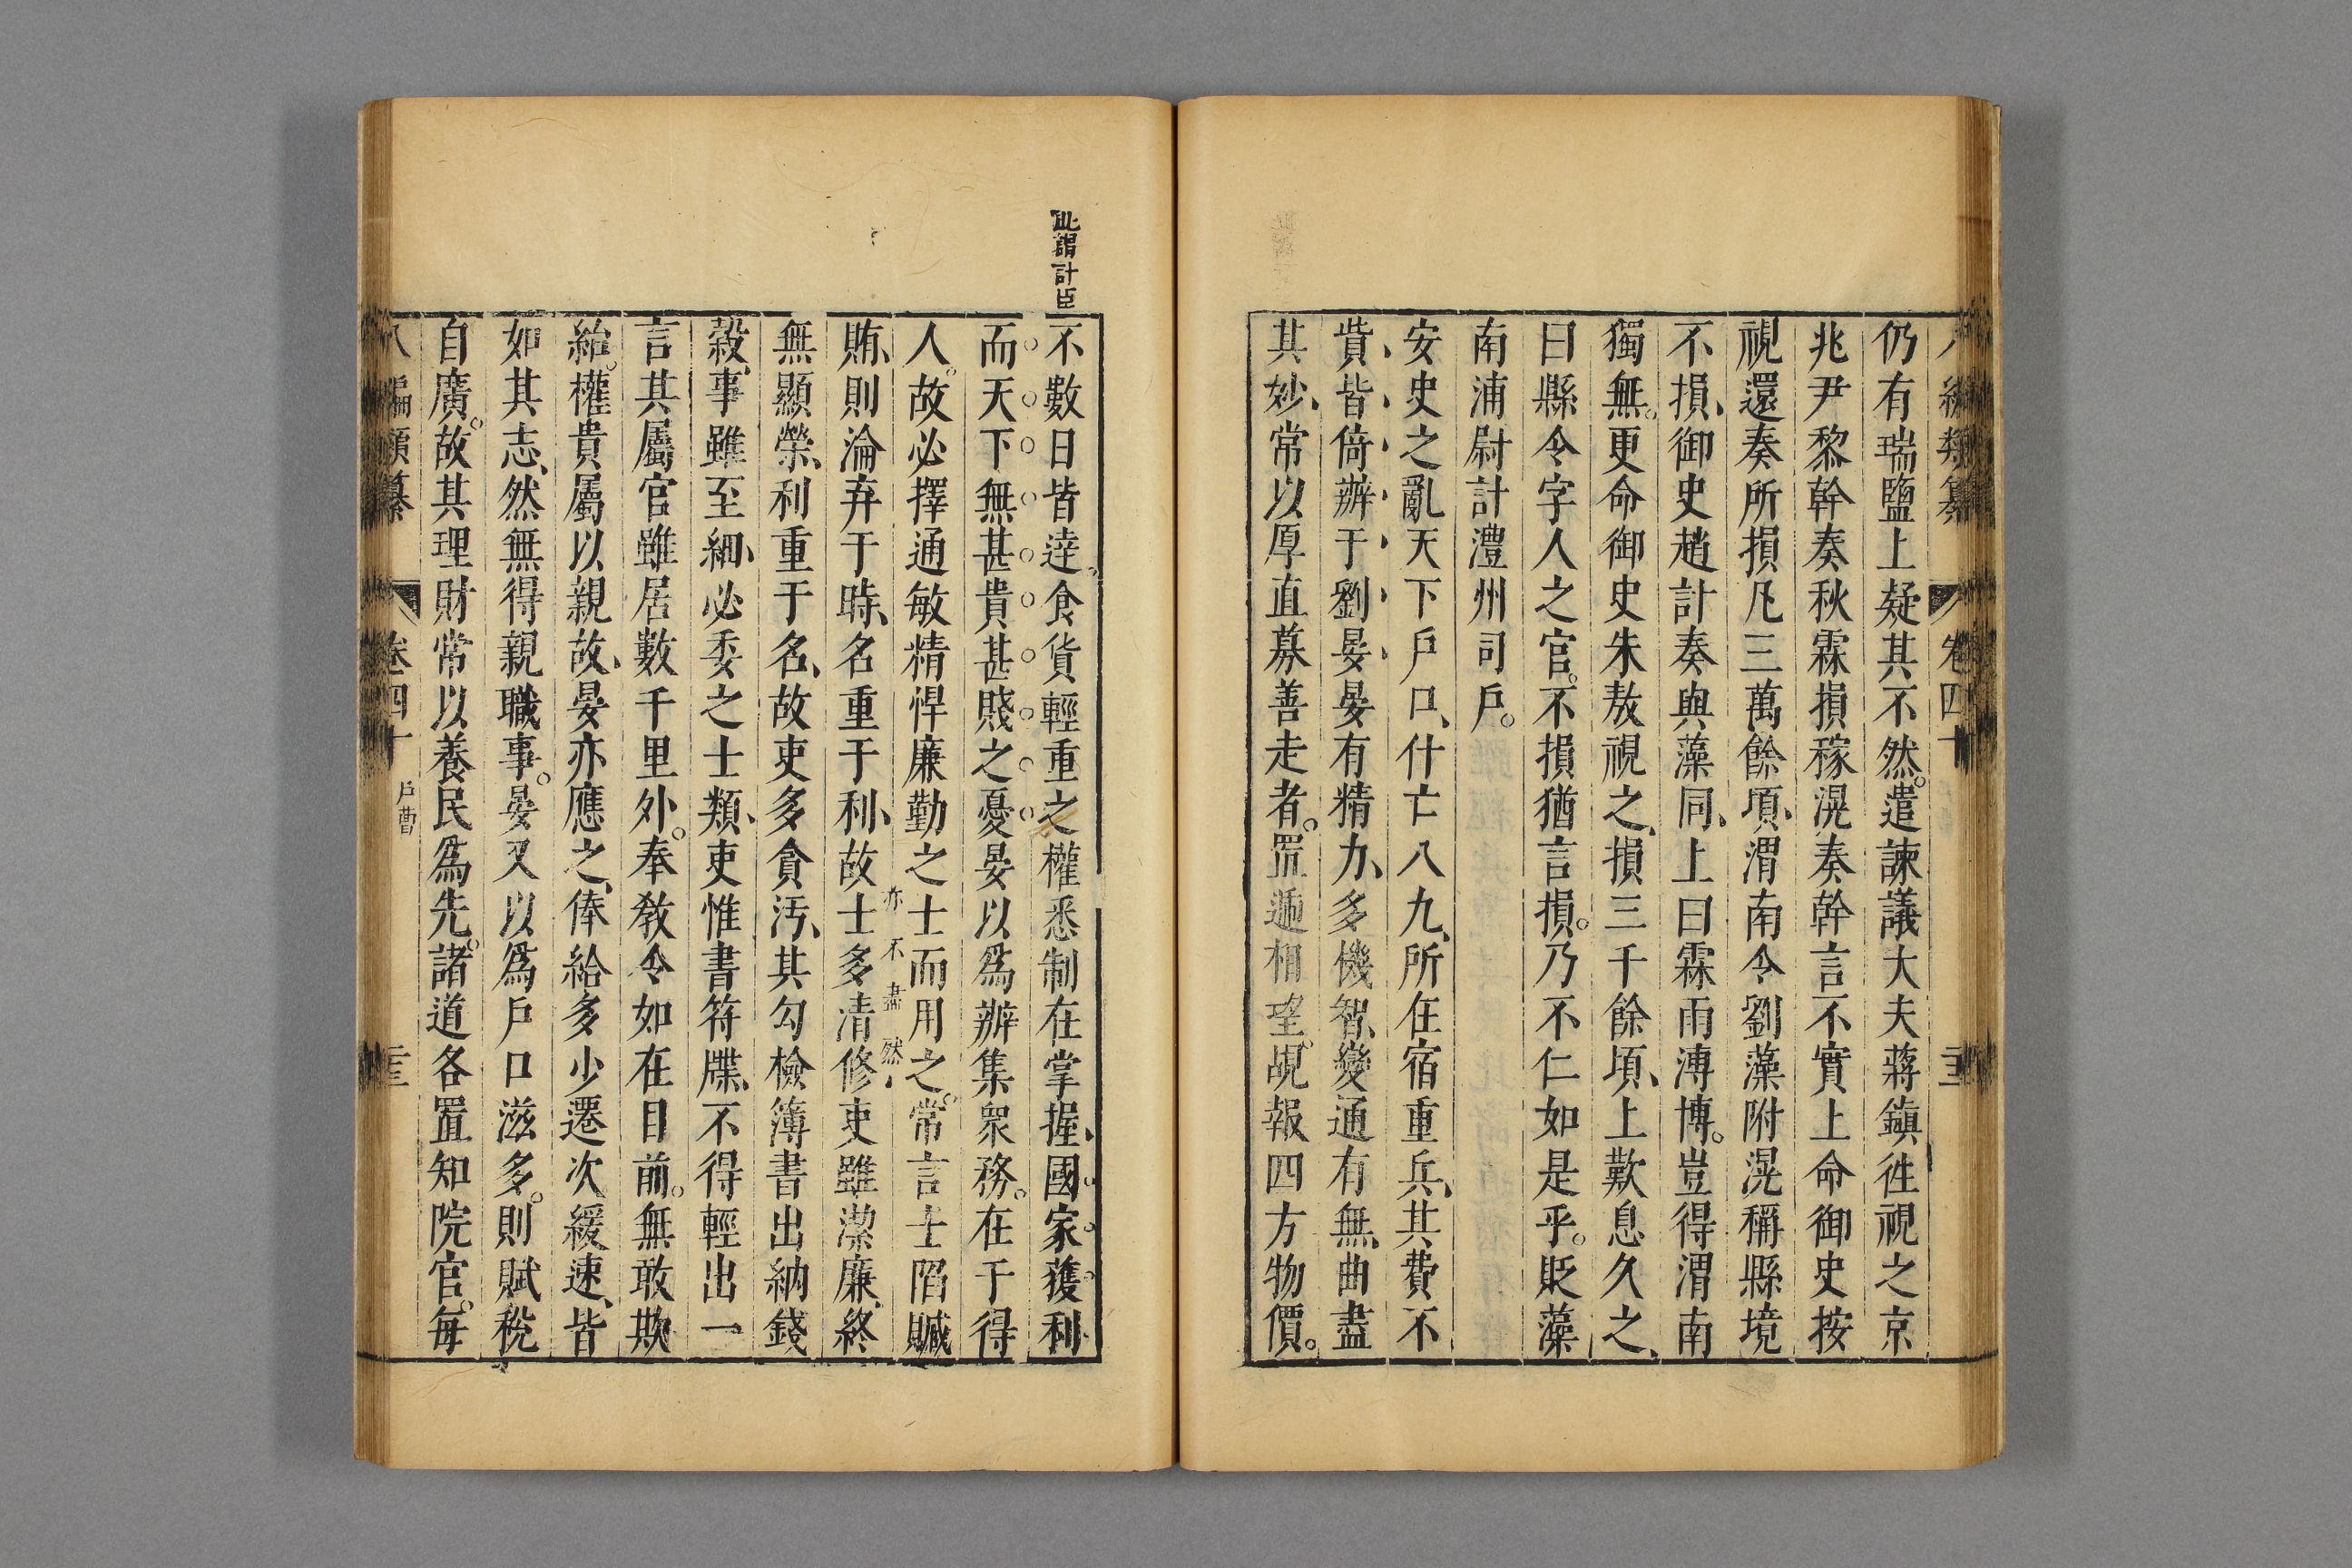 仍有瑞鹽上疑其不然。遣諫議大夫蔣鎮徃視之京
兆尹黎幹奏秋霖損稼滉奏幹言不實上命御史按
視還奏所損凡三萬餘頃、渭南令劉藻附滉稱縣境
不損、御史趙計奏與藻同、上曰霖雨溥博。豈得渭南
獨無。更命御史朱敖視之、損三千餘頃、上歎息久之、
曰縣令字人之官。不損猶言損。乃不仁如是乎。貶藻
南浦尉計澧州司戶。
安史之亂天下戶口、什亡八九、所在宿重兵、其費不
貲、皆倚辦于劉晏、晏有精力、多機智、變通有無、曲盡
其妙、常以厚直募善走者。置遞相望。覘報四方物價。
八編類纂 卷四十 二十三
此謂計臣
不數日皆達、食貨輕重之權悉制在掌握、國家獲利
而天下無甚貴甚賤之憂晏以爲辦集衆務。在于得
人。故必擇通敏精悍廉勤之士而用之。常言士陷贓
賄、則淪弃于時、名重于利、故士多清修、吏雖潔廉、終
亦不盡然
無顯榮、利重于名、故吏多貪污、其勾檢簿書出納錢
穀、事雖至細、必委之士類、吏惟書符牒、不得輕出一
言其屬官雖居數千里外。奉敎令如在目前。無敢欺
紿。權貴屬以親故、晏亦應之、俸給多少遷次緩速、皆
如其志、然無得親職事。晏又以爲戶口滋多。則賦稅
自廣。故其理財常以養民爲先。諸道各置知院官。每
八編類纂 卷四十 戶曹 二十三